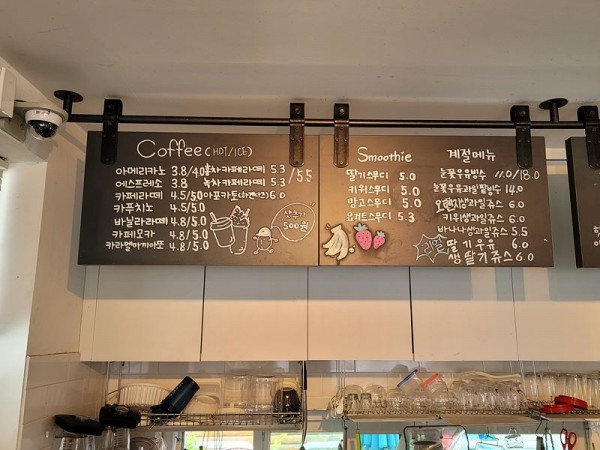 Coffee (HOT/ICE)
아메리카노 3.8/4.0
에스프레소 3.8
카페라떼 4.5/5.0
카푸치노 4.5/5.0
바닐라라떼 4.8/5.0
카페모카 4.8/5.0
카라멜마끼아또 4.8/5.0
홍차카페라떼 5.3
녹차카페라떼 5.3
/5.5
아포카토 6.0
샷추가
500원
Smoothie
딸기스무디 5.0
키위스무디 5.0
망고스무디 5.0
요거트스무디 5.3
계절메뉴
눈꽃우유빙수 11.0/18.0
눈꽃우유과일팥빙수 14.0
오렌지생과일쥬스 6.0
키위생과일쥬스 6.0
바나나생과일쥬스 5.5
리얼 딸기우유 6.0
생딸기쥬스 6.0